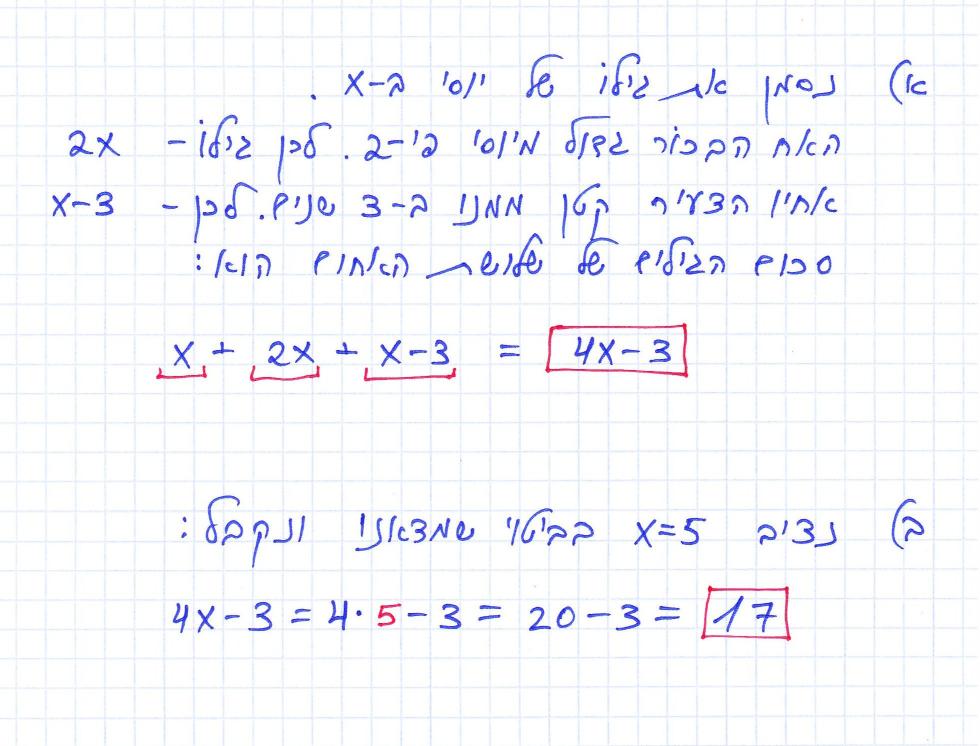 א) נסמן את גילו של יוסי ב-x .
האח הבכור גדול מיוסי פי-2. לכן גילו - 2x
אחיו הצעיר קטן ממנו ב-3 שנים. לכן - x-3
סכום הגילים של שלושת האחים הוא:
x + 2x + x-3 = 4x-3
ב) נציב x=5 בביטוי שמצאנו ונקבל:
4x-3 = 4·5-3 = 20-3 = 17